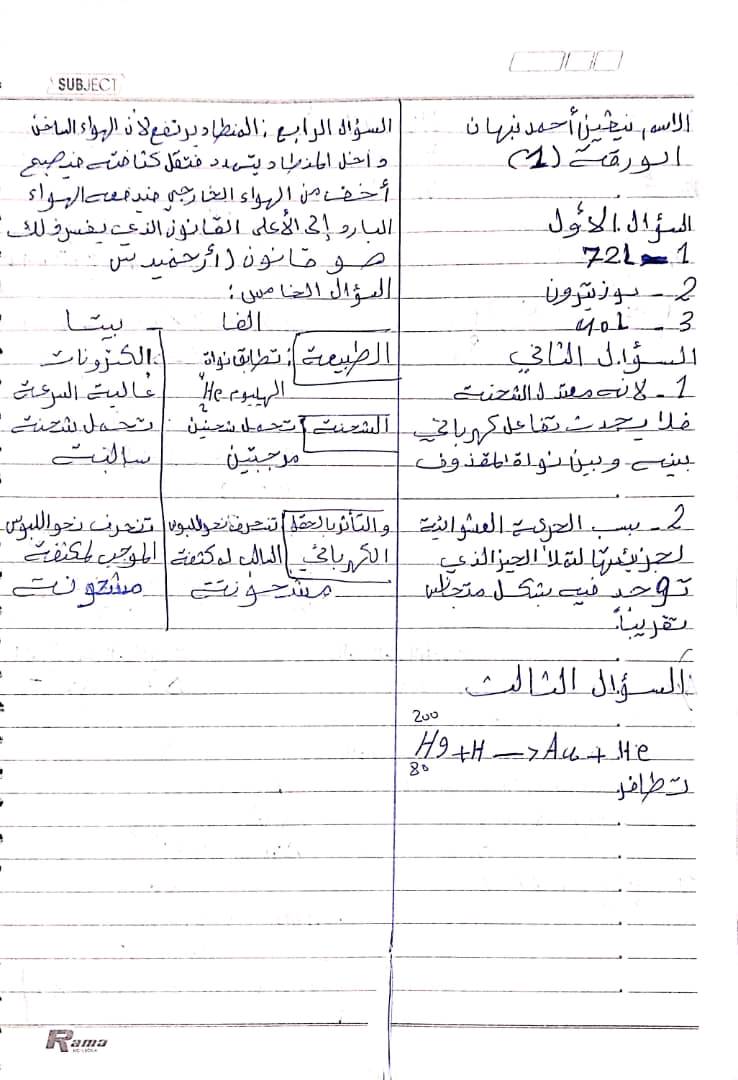 SUBJECT
الاسم نيڤين أحمد نبهان
الورقة (1)
السؤال الأول
1 - 721
2 - بوزيترون
3 - mol
السؤال الثاني
1 - لأنه معتدل الشحنة
فلا يحدث تفاعل كهربائي
بينه وبين نواة المقذوف
2 - بسبب الحركة العشوائية
لجزيئاتها لتملأ الحيز الذي
توجد فيه بشكل متجانس
تقريباً.
السؤال الثالث
200
Hg + H → Au + He
80
تطافر
السؤال الرابع : المنطاد يرتفع لأن الهواء الساخن
داخل المنطاد يتمدد فتقل كثافته فيصبح
أخف من الهواء الخارجي فيدفعه الهواء
البارد إلى الأعلى القانون الذي يفسر ذلك
هو قانون (أرخميدس
السؤال الخامس :
الفا - بيتا
الطبيعة : تطابق نواة الكترونات
الهيليوم He عالية السرعة
2
الشحنة تحمل شحنتين تحمل شحنة
موجبتين سالبة
والتأثر بالحقل تنحرف نحو اللبوس تنحرف نحو اللبوس
الكهربائي السالب لمكثفة الموجب لمكثفة
مشحونة مشحونة
Rama